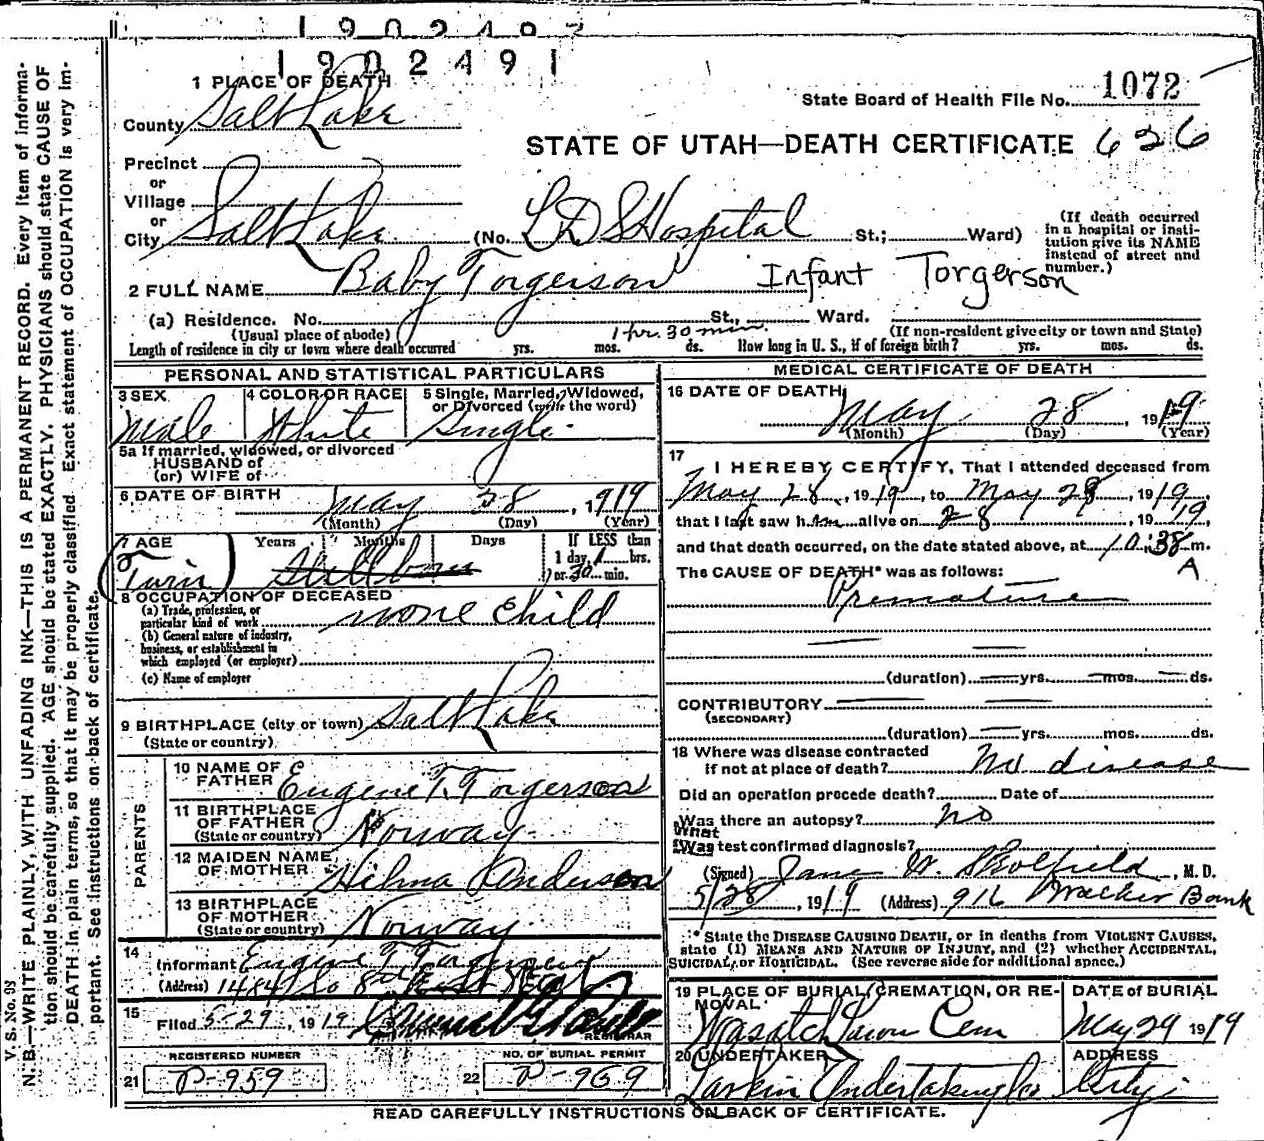 1902491
1 PLACE OF DEATH
State Board of Health File No. 1072
County Salt Lake
STATE OF UTAH—DEATH CERTIFICATE 626
Precinct
or
Village
or
City Salt Lake (No. L D S Hospital St.; Ward)
(If death occurred in a hospital or institution give its NAME instead of street and number.)
2 FULL NAME Baby Torgerson Infant Torgerson
(a) Residence. No. St., Ward.
(Usual place of abode) 1 hr. 30 min. (If non-resident give city or town and State)
Length of residence in city or town where death occurred yrs. mos. ds. How long in U. S., if of foreign birth? yrs. mos. ds.
PERSONAL AND STATISTICAL PARTICULARS
3 SEX Male
4 COLOR OR RACE White
5 Single, Married, Widowed, or Divorced (write the word) Single
5a If married, widowed, or divorced
HUSBAND of
(or) WIFE of
6 DATE OF BIRTH May 28, 1919
(Month) (Day) (Year)
7 AGE Years Months Days If LESS than
1 day, 1 hrs.
or 30 min.
(Twin) Stillborn
8 OCCUPATION OF DECEASED
(a) Trade, profession, or
particular kind of work none child
(b) General nature of industry,
business, or establishment in
which employed (or employer)
(c) Name of employer
9 BIRTHPLACE (city or town) Salt Lake
(State or country)
PARENTS
10 NAME OF FATHER Eugene T. Torgerson
11 BIRTHPLACE OF FATHER
(State or country) Norway
12 MAIDEN NAME OF MOTHER Hilma Anderson
13 BIRTHPLACE OF MOTHER
(State or country) Norway
14
Informant Eugene T. Torgerson
(Address) 1484 So 8th East
15 Filed 5-29, 1919
REGISTRAR
REGISTERED NUMBER
21 P-959
NO. OF BURIAL PERMIT
22 P-969
MEDICAL CERTIFICATE OF DEATH
16 DATE OF DEATH
May 28, 1919
(Month) (Day) (Year)
17
I HEREBY CERTIFY, That I attended deceased from
May 28, 1919, to May 28, 1919,
that I last saw him alive on 28, 1919,
and that death occurred, on the date stated above, at 10:38 m.
A
The CAUSE OF DEATH* was as follows:
Premature
(duration) yrs. mos. ds.
CONTRIBUTORY
(SECONDARY)
(duration) yrs. mos. ds.
18 Where was disease contracted
if not at place of death? No disease
Did an operation precede death? Date of
Was there an autopsy? no
What
Was test confirmed diagnosis?
(Signed) Jane W. , M. D.
5/28, 1919 (Address) 916 Walker Bank
* State the DISEASE CAUSING DEATH, or in deaths from VIOLENT CAUSES,
state (1) MEANS AND NATURE OF INJURY, and (2) whether ACCIDENTAL,
SUICIDAL, or HOMICIDAL. (See reverse side for additional space.)
19 PLACE OF BURIAL, CREMATION, OR REMOVAL
Wasatch Lawn Cem
DATE of BURIAL
May 29 1919
20 UNDERTAKER
Larkin Undertaking Co
ADDRESS
City
READ CAREFULLY INSTRUCTIONS ON BACK OF CERTIFICATE.
V. S. No. 98
N. B.—WRITE PLAINLY, WITH UNFADING INK—THIS IS A PERMANENT RECORD. Every item of information should be carefully supplied. AGE should be stated EXACTLY. PHYSICIANS should state CAUSE OF DEATH in plain terms, so that it may be properly classified. Exact statement of OCCUPATION is very important. See instructions on back of certificate.